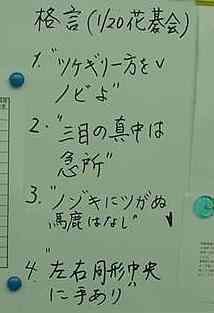 格言(1/20花碁会)
1."ツケギリ一方を
ノビよ"
2."三目の真中は
急所"
3."ノゾキにツがぬ
馬鹿はなし"
4."左右同形中央
に手あり"